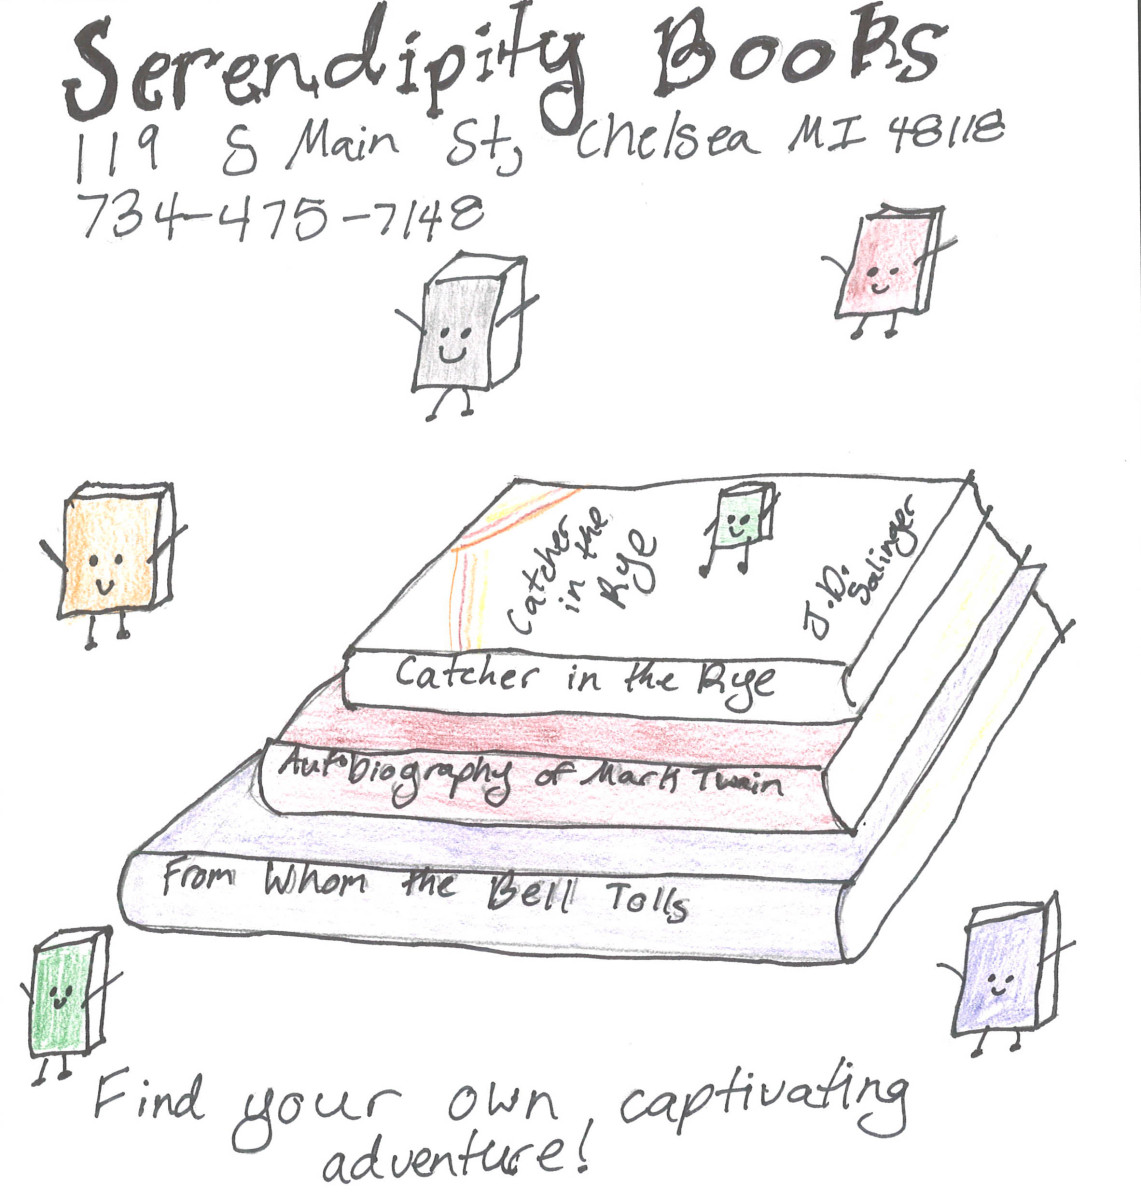 Serendipity Books
119 S Main St, Chelsea MI 48118
734-475-7148
Catcher
in the
Rye
J.D.
Salinger
Catcher in the Rye
Autobiography of Mark Twain
From Whom the Bell Tolls
Find your own captivating
adventure!